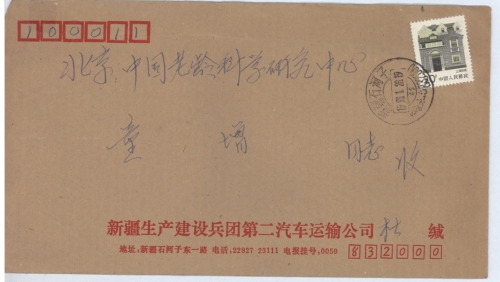 100011
北京 中国老龄科学研究中心
童增 同志 收
新疆生产建设兵团第二汽车运输公司 杜 缄
地址:新疆石河子东一路 电话:22927-23111 电报挂号:0059
832000